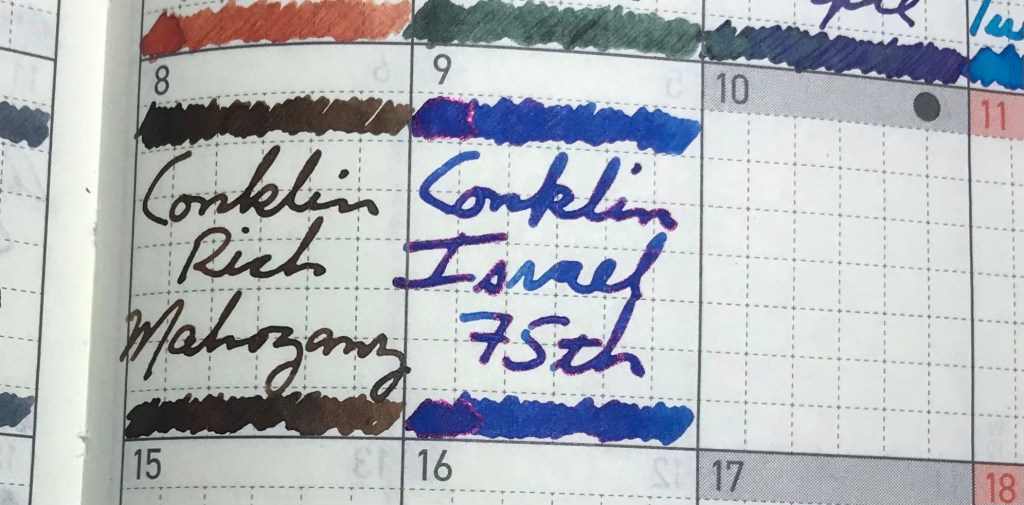 8
9
10
11
Conklin
Rich
Mahogany
Conklin
Israel
75th
15
16
17
18